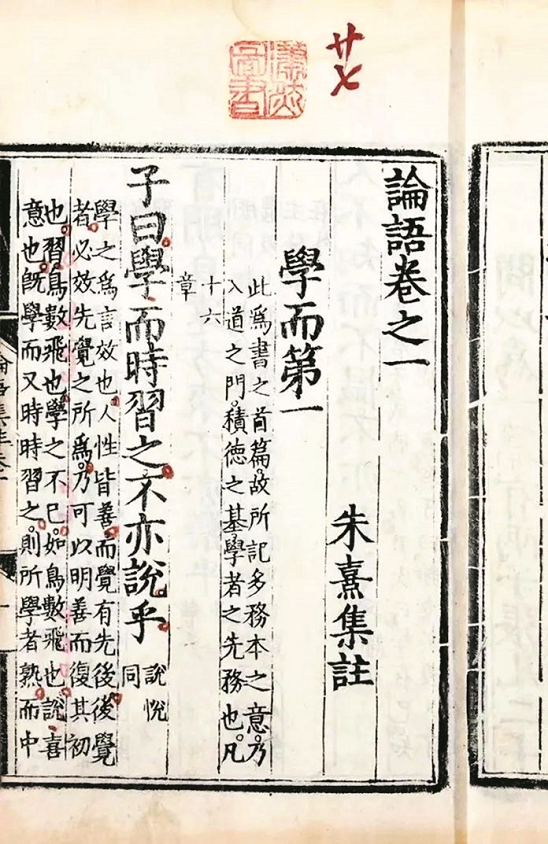 廿七
圖書
論語卷之一
朱熹集註
學而第一
此為書之首篇故所記多務本之意乃
入道之門積德之基學者之先務也凡
十六
章
子曰學而時習之不亦說乎
說悅
同
學之為言效也人性皆善而覺有先後後覺
者必效先覺之所為乃可以明善而復其初
也習鳥數飛也學之不已如鳥數飛也說喜
意也既學而又時時習之則所學者熟而中